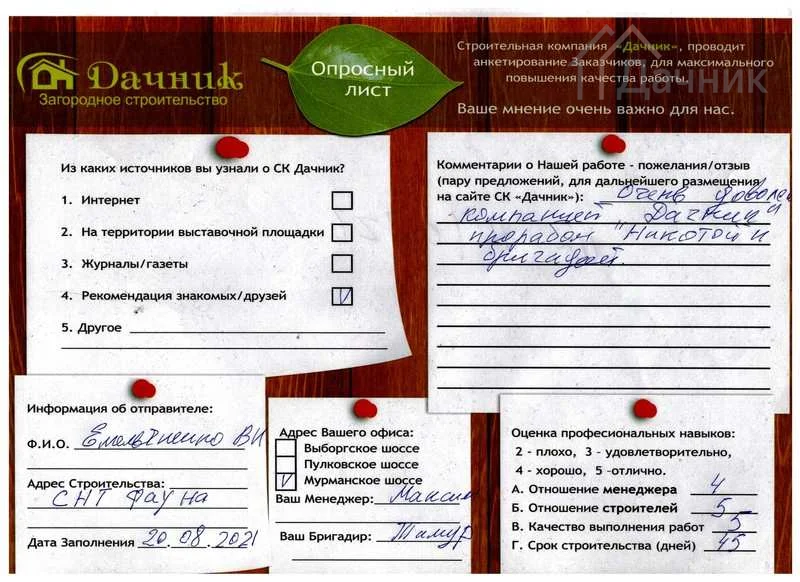 Дачник
Загородное строительство
Опросный
лист
Строительная компания «Дачник», проводит
анкетирование Заказчиков, для максимального
повышения качества работы.
Ваше мнение очень важно для нас.
Дачник
Из каких источников вы узнали о СК Дачник?
1. Интернет
2. На территории выставочной площадки
3. Журналы/газеты
4. Рекомендация знакомых/друзей V
5. Другое
Комментарии о Нашей работе - пожелания/отзыв
(пару предложений, для дальнейшего размещения
на сайте СК «Дачник»): Очень доволен
компанией "Дачник"
прорабом "Никотой и
бригадой.
Информация об отправителе:
Ф.И.О. Емельяненко ВН
Адрес Строительства:
СНТ Фауна
Дата Заполнения 20.08.2021
Адрес Вашего офиса:
Выборгское шоссе
Пулковское шоссе
V Мурманское шоссе
Ваш Менеджер: Максим
Ваш Бригадир: Тимур
Оценка профессиональных навыков:
2 - плохо, 3 - удовлетворительно,
4 - хорошо, 5 -отлично.
А. Отношение менеджера 4
Б. Отношение строителей 5
В. Качество выполнения работ 5
Г. Срок строительства (дней) 45